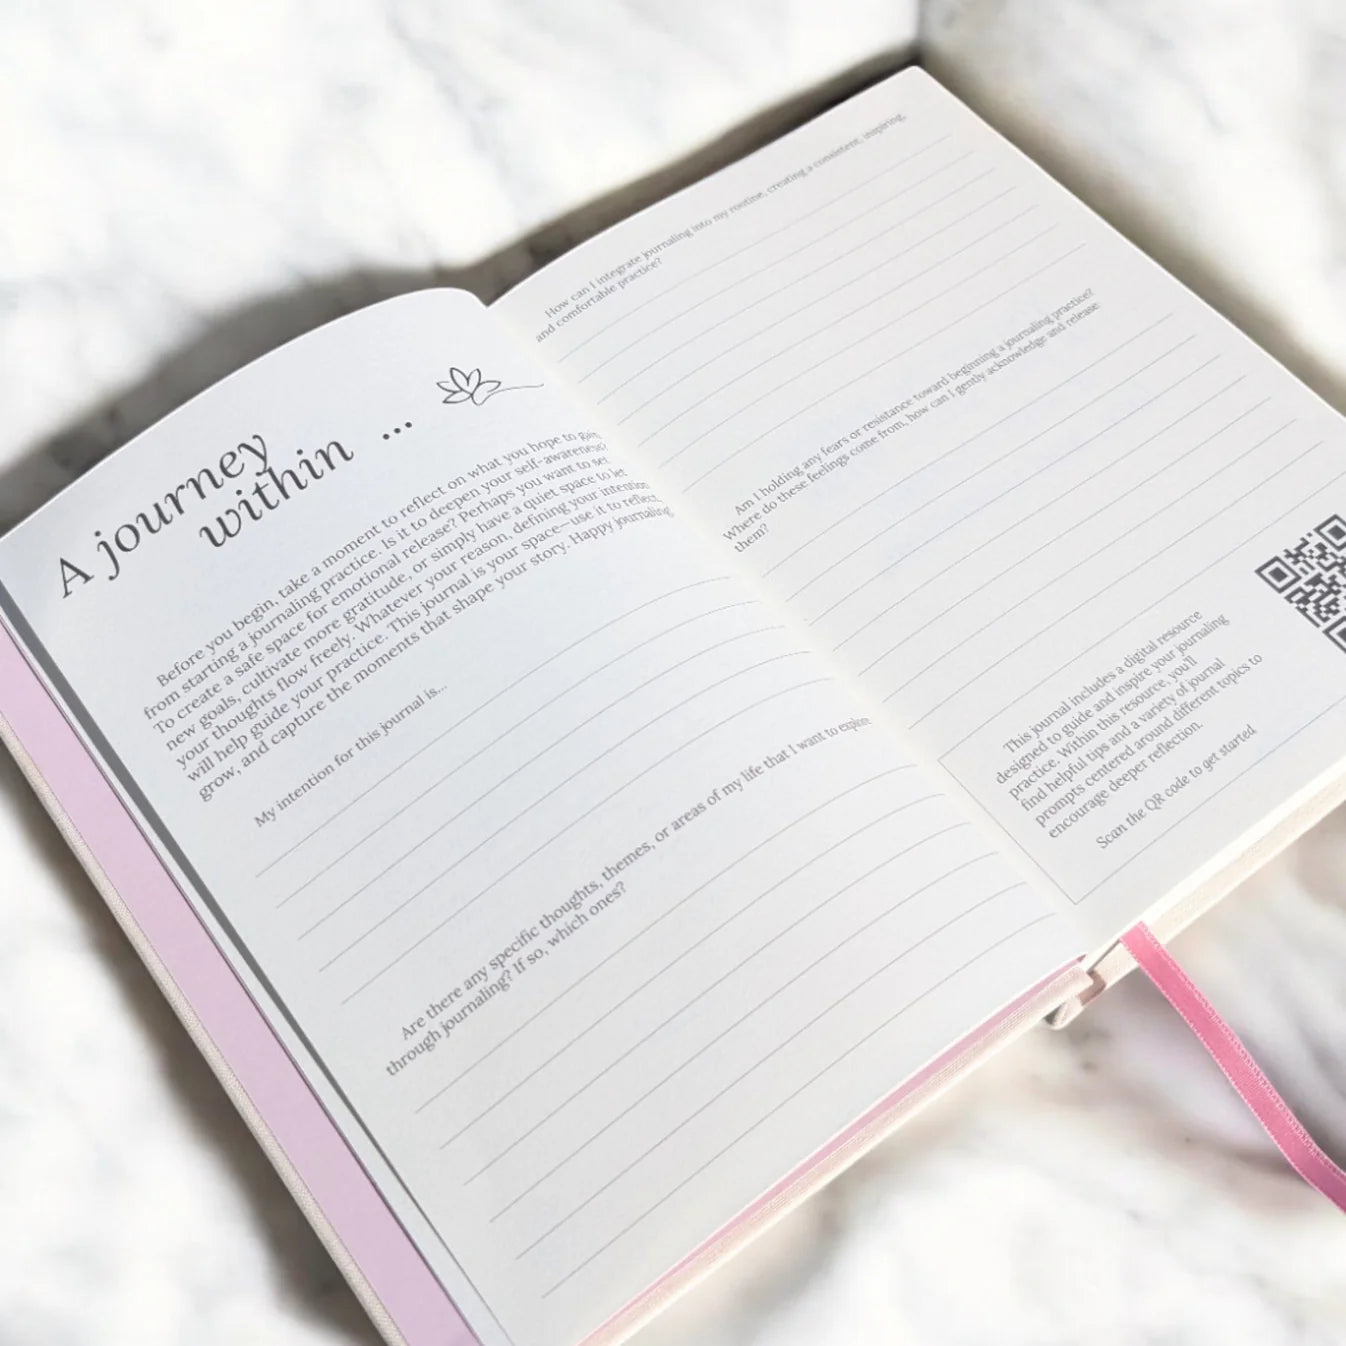 A journey
within ...
Before you begin, take a moment to reflect on what you hope to gain
from starting a journaling practice. Is it to deepen your self-awareness?
To create a safe space for emotional release? Perhaps you want to set
new goals, cultivate more gratitude, or simply have a quiet space to let
your thoughts flow freely. Whatever your reason, defining your intention
will help guide your practice. This journal is your space—use it to reflect,
grow, and capture the moments that shape your story. Happy journaling
My intention for this journal is...
Are there any specific thoughts, themes, or areas of my life that I want to explore
through journaling? If so, which ones?
How can I integrate journaling into my routine, creating a consistent, inspiring,
and comfortable practice?
Am I holding any fears or resistance toward beginning a journaling practice?
Where do these feelings come from, how can I gently acknowledge and release
them?
This journal includes a digital resource
designed to guide and inspire your journaling
practice. Within this resource, you'll
find helpful tips and a variety of journal
prompts centered around different topics to
encourage deeper reflection.
Scan the QR code to get started